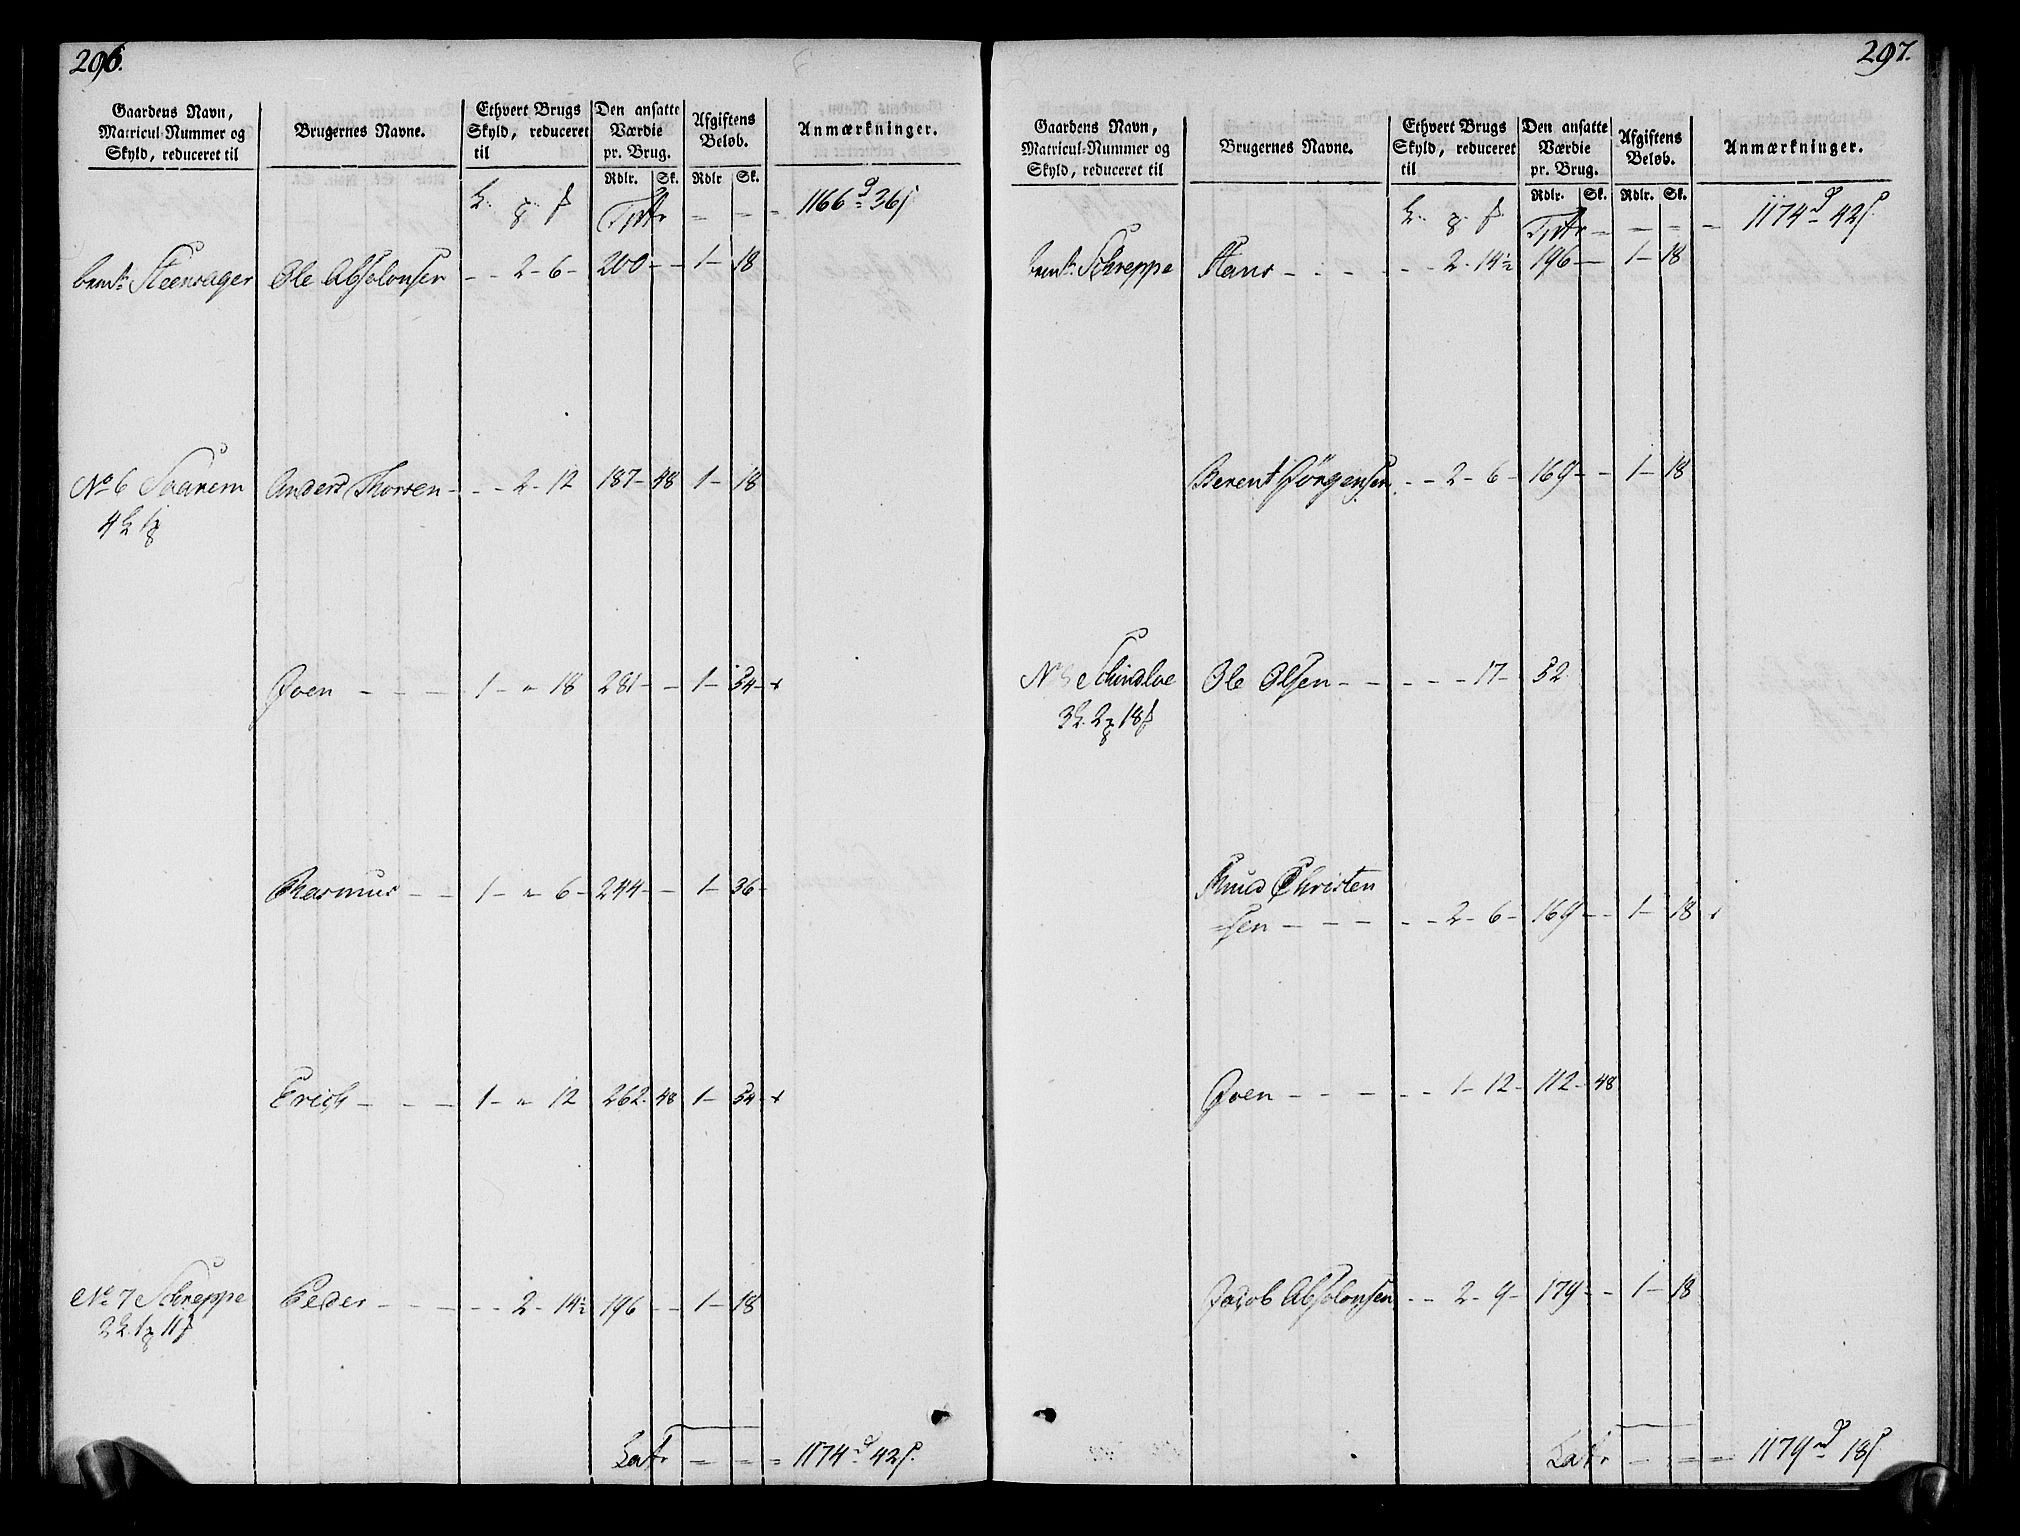 296.
Gaardens Navn, Matricul-Nummer og Skyld, reduceret til
Brugernes Navne.
Ethvert Brugs Skyld, reduceret til
Den ansatte Værdie pr. Brug.
Afgiftens Beløb.
Anmærkninger.
Rdlr. Sk. Rdlr Sk.
Tptr - - - 1166 d 36 s
Steensager Ole Absolonsen - - 2 - 6 - 200 - - 1 - 18
No 6 Saarem Anders Thorsen - - - 2 - 12 187 - 48 1 - 18
4 1
Sven - - - 1 - " 18 281 - - 1 - 54 -
Rasmus - - 1 - " 6 - 244 - - 1 - 36 -
Erich - - - 1 - " 12 262 - 48 1 - 54 -
No 7 Schreppe Peder - - - - - 2 - 14½ 196 - - 1 - 18
2 1 11
Latr - - = 1174 d 42 s.
297.
Gaardens Navn, Matricul-Nummer og Skyld, reduceret til
Brugernes Navne.
Ethvert Brugs Skyld, reduceret til
Den ansatte Værdie pr. Brug.
Afgiftens Beløb.
Anmærkninger.
Rdlr. Sk. Rdlr. Sk.
Tptr - - - - 1174 d 42 s
Schreppe Hans - - - - - - 2 - 14½ 196 - - 1 - 18
Berent Jørgensen - - 2 - 6 - 169 - - 1 - 18
Schindloe Ole Olsen - - - - - - 17 - 52
3 2 18
Knud Christen
=sen - - - - - - 2 - 6 - 169 - - 1 - 18
Sven - - - - - - 1 - 12 - 112 - 48
Jacob Absolonsen - - 2 - 9 - 179 - - 1 - 18
Latr - - - 1179 d 18 s